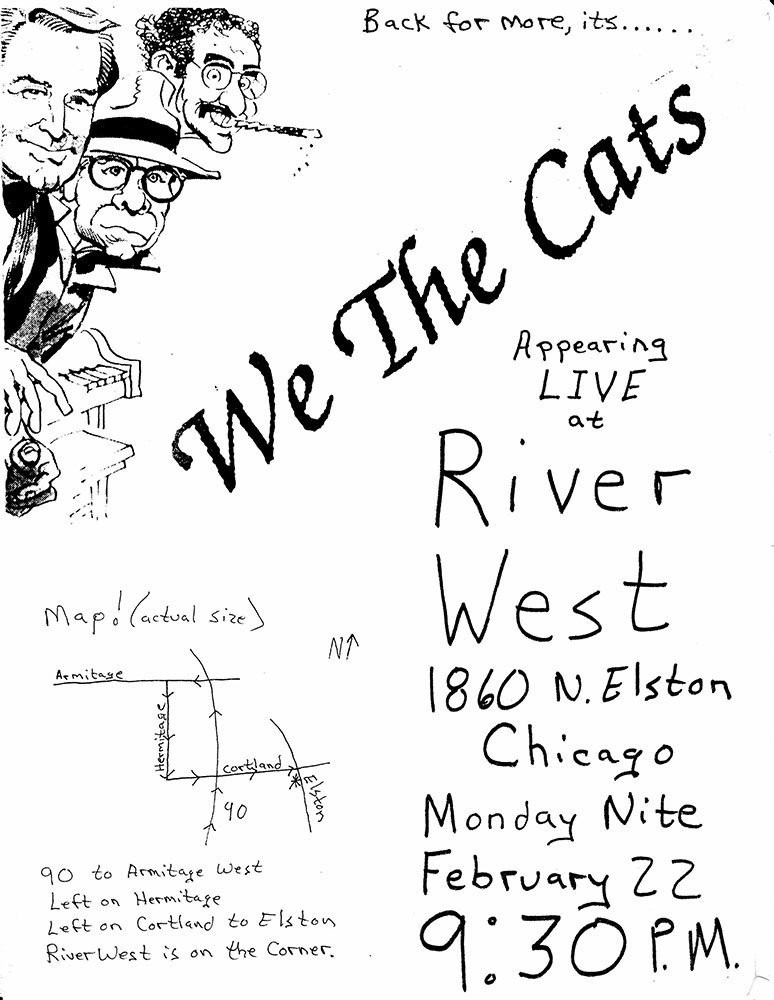 Back for more, its......
We The Cats
Appearing
LIVE
at
River
West
1860 N. Elston
Chicago
Monday Nite
February 22
9:30 P.M.
Map! (actual size)
N↑
Armitage
Hermitage
Cortland
Elston
90
90 to Armitage West
Left on Hermitage
Left on Cortland to Elston
RiverWest is on the Corner.